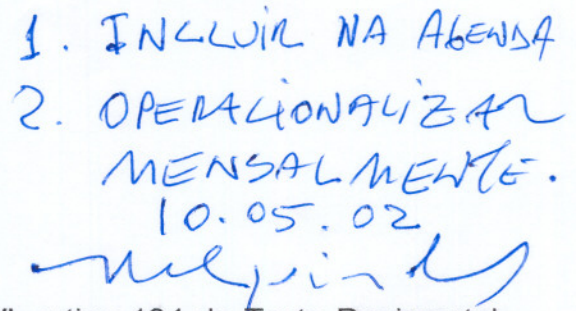 1. INCLUIR NA AGENDA
2. OPERACIONALIZAR
MENSALMENTE.
10.05.02